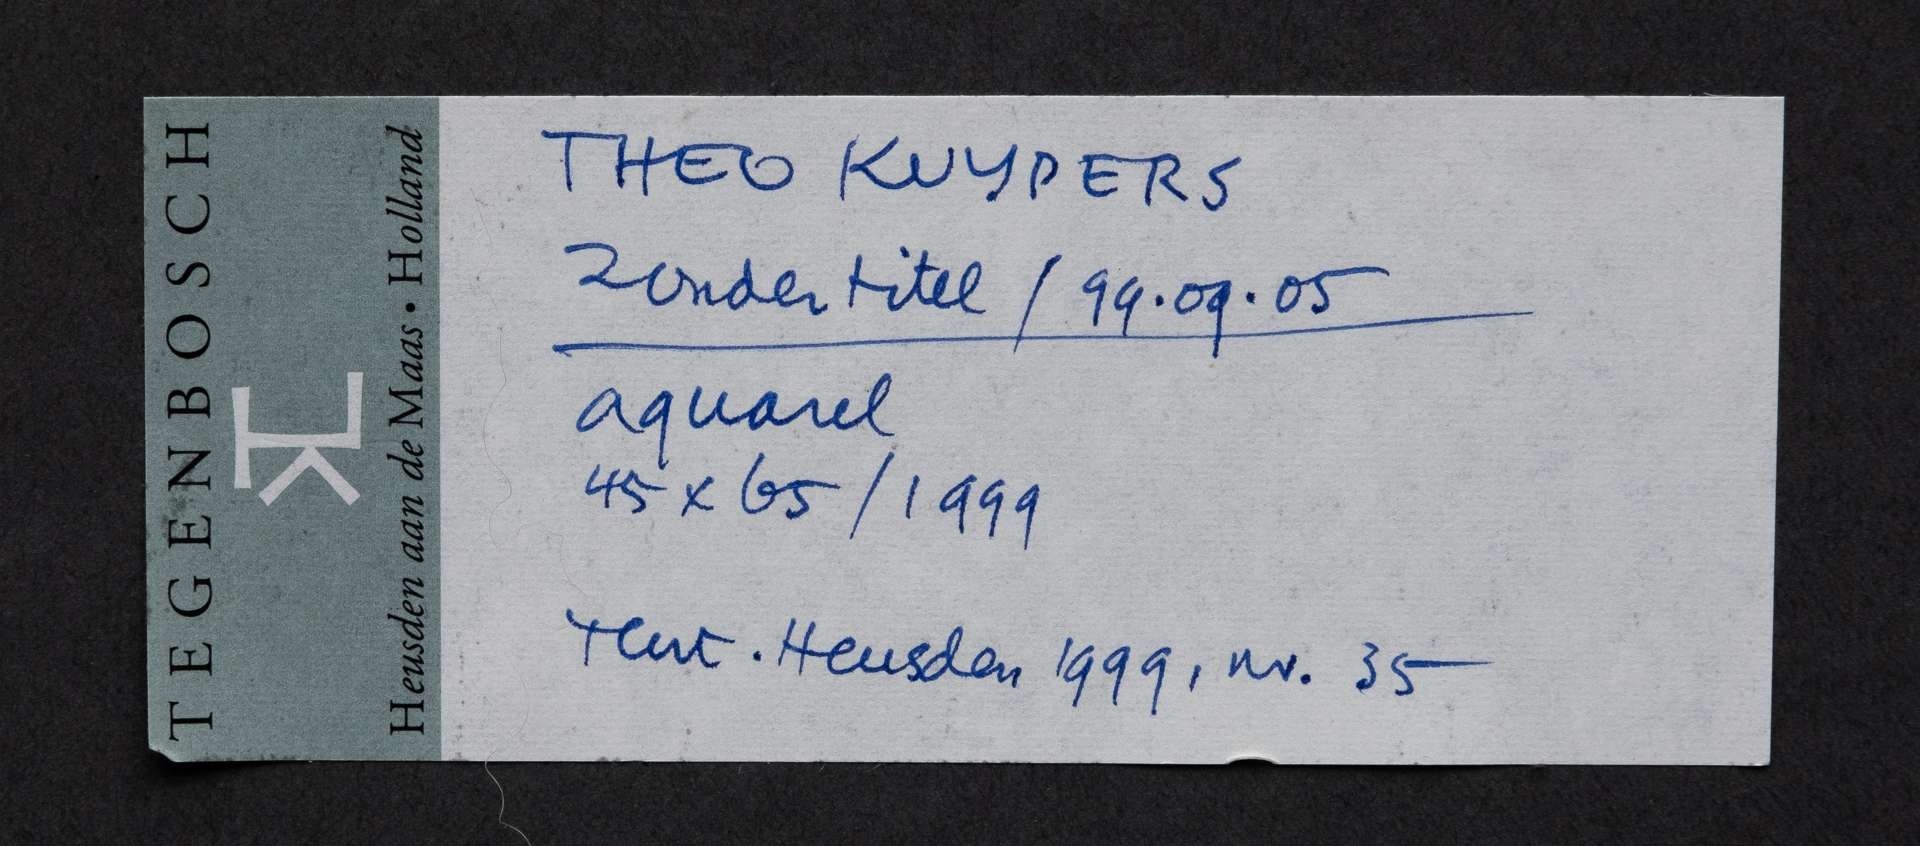 TEGENBOSCH
TK
Heusden aan de Maas • Holland
THEO KUYPERS
Zonder titel / 99.09.05
aquarel
45 x 65 / 1999
tent. Heusden 1999, nr. 35